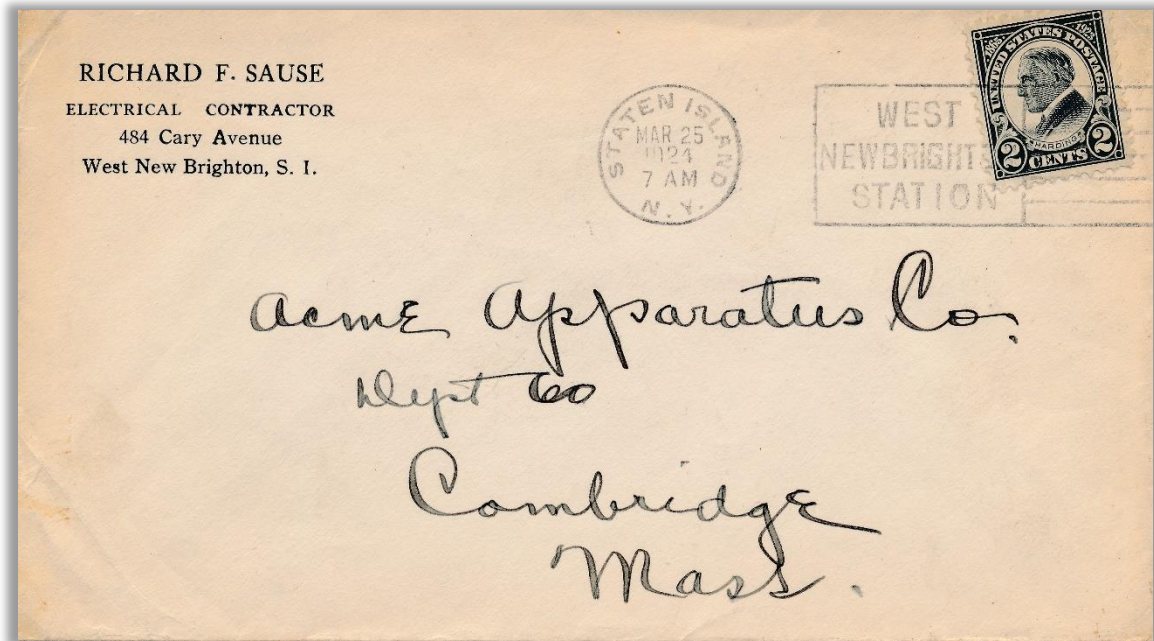 RICHARD F. SAUSE
ELECTRICAL CONTRACTOR
484 Cary Avenue
West New Brighton, S. I.
STATEN ISLAND
MAR 25
1924
7 AM
N. Y.
WEST
NEWBRIGHT
STATION
1865 1923
UNITED STATES POSTAGE
HARDING
2 CENTS 2
Acme Apparatus Co.
Dept 60
Cambridge
Mass.